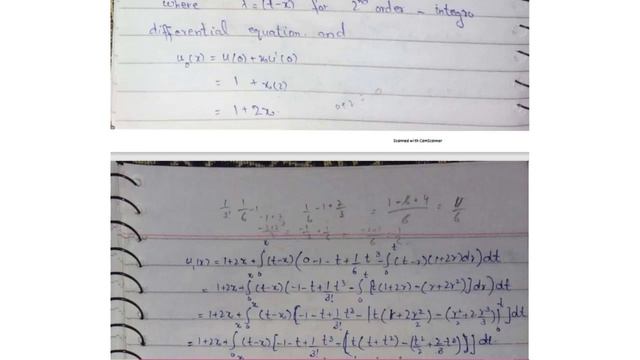 where λ = (t-x) for 2nd order - integro
differential equation and
u₀(x) = u(0) + xu'(0)
= 1 + x(2)
= 1 + 2x
Scanned with CamScanner
u₁(x) = 1+2x + ∫₀ˣ (t-x) (0-1-t+1/6 t³ - ∫₀ᵗ (t-r)(1+2r)dr) dt
= 1+2x + ∫₀ˣ (t-x) (-1-t+1/3! t³ - ∫₀ᵗ [t(1+2r) - (r+2r²)] dr) dt
= 1+2x + ∫₀ˣ (t-x) [-1-t+1/3! t³ - |t(r+2r²/2) - (r²/2+2r³/3)|₀ᵗ] dt
= 1+2x + ∫₀ˣ (t-x) [-1-t+1/3! t³ - (t(t+t²) - (t²/2+2/3 t³))] dt